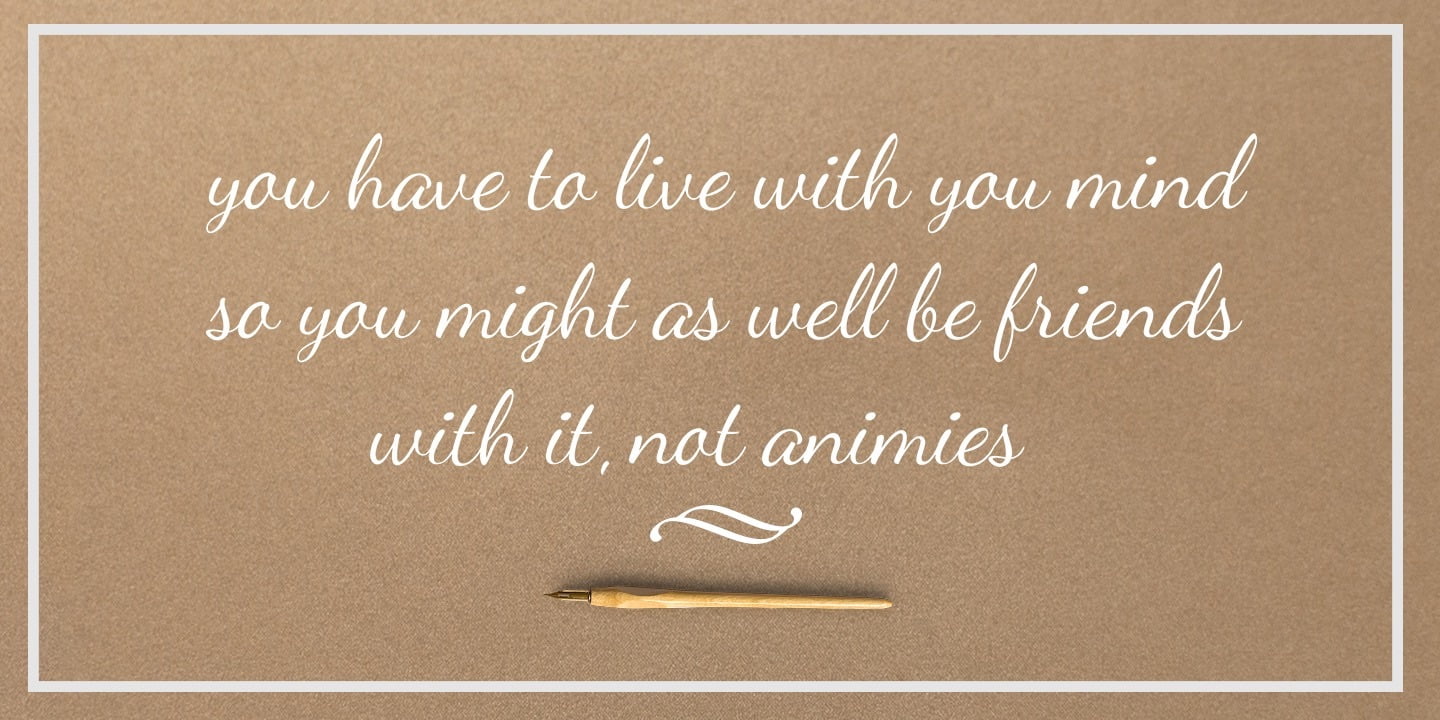 you have to live with you mind
so you might as well be friends
with it, not animies